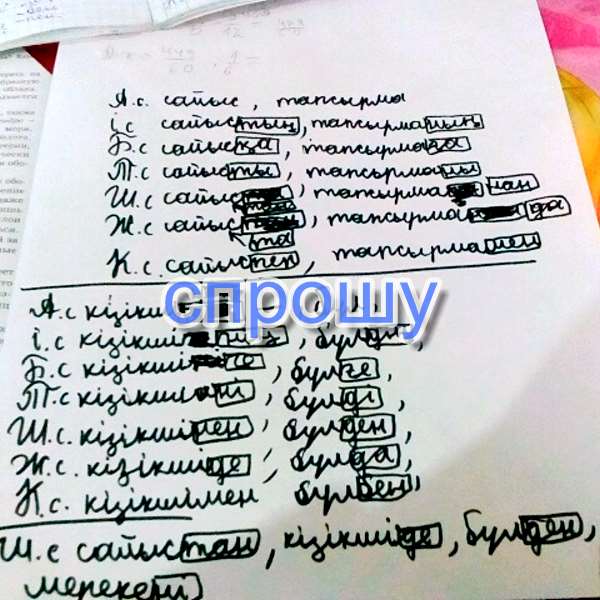 А.с. сайыс, тапсырма
І.с сайыстың, тапсырманың
Б.с сайысқа, тапсырмаға
Т.с сайысты, тапсырманы
Ш.с сайыс тан, тапсырма нан
Ж.с сайыс та, тапсырма да
К.с. сайыспен, тапсырмамен
спрошу
А.с кізікші
І.с кізікшінің, бүл
Б.с кізікшіге, бүлге
Т.с кізікшіні, бүлді
Ш.с. кізікшінен, бүлден
Ж.с. кізікшіде, бүлда
К.с. кізікшімен бүлбен
Ш.с сайыстан, кізікшіде, бүлден,
мереке